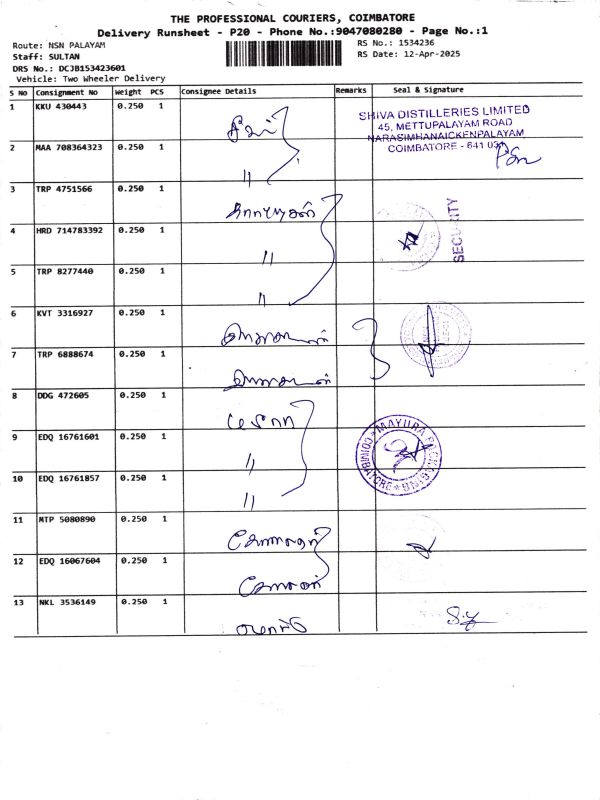 THE PROFESSIONAL COURIERS, COIMBATORE
Delivery Runsheet - P20 - Phone No.:9047080280 - Page No.:1
Route: NSN PALAYAM
RS No.: 1534236
Staff: SULTAN
RS Date: 12-Apr-2025
DRS No.: DCJB153423601
Vehicle: Two Wheeler Delivery
S No Consignment No Weight PCS Consignee Details Remarks Seal & Signature
1 KKU 430443 0.250 1
SHIVA DISTILLERIES LIMITED
45, METTUPALAYAM ROAD
NARASIMHANAICKENPALAYAM
COIMBATORE - 641 031
2 MAA 708364323 0.250 1 "
3 TRP 4751566 0.250 1
SECURITY
4 HRD 714783392 0.250 1 "
5 TRP 8277440 0.250 1 "
6 KVT 3316927 0.250 1
7 TRP 6888674 0.250 1
8 DDG 472605 0.250 1
9 EDQ 16761601 0.250 1 "
MAYURA PACKAGING
COIMBATORE
10 EDQ 16761857 0.250 1 "
11 MTP 5080890 0.250 1
12 EDQ 16067604 0.250 1
13 NKL 3536149 0.250 1